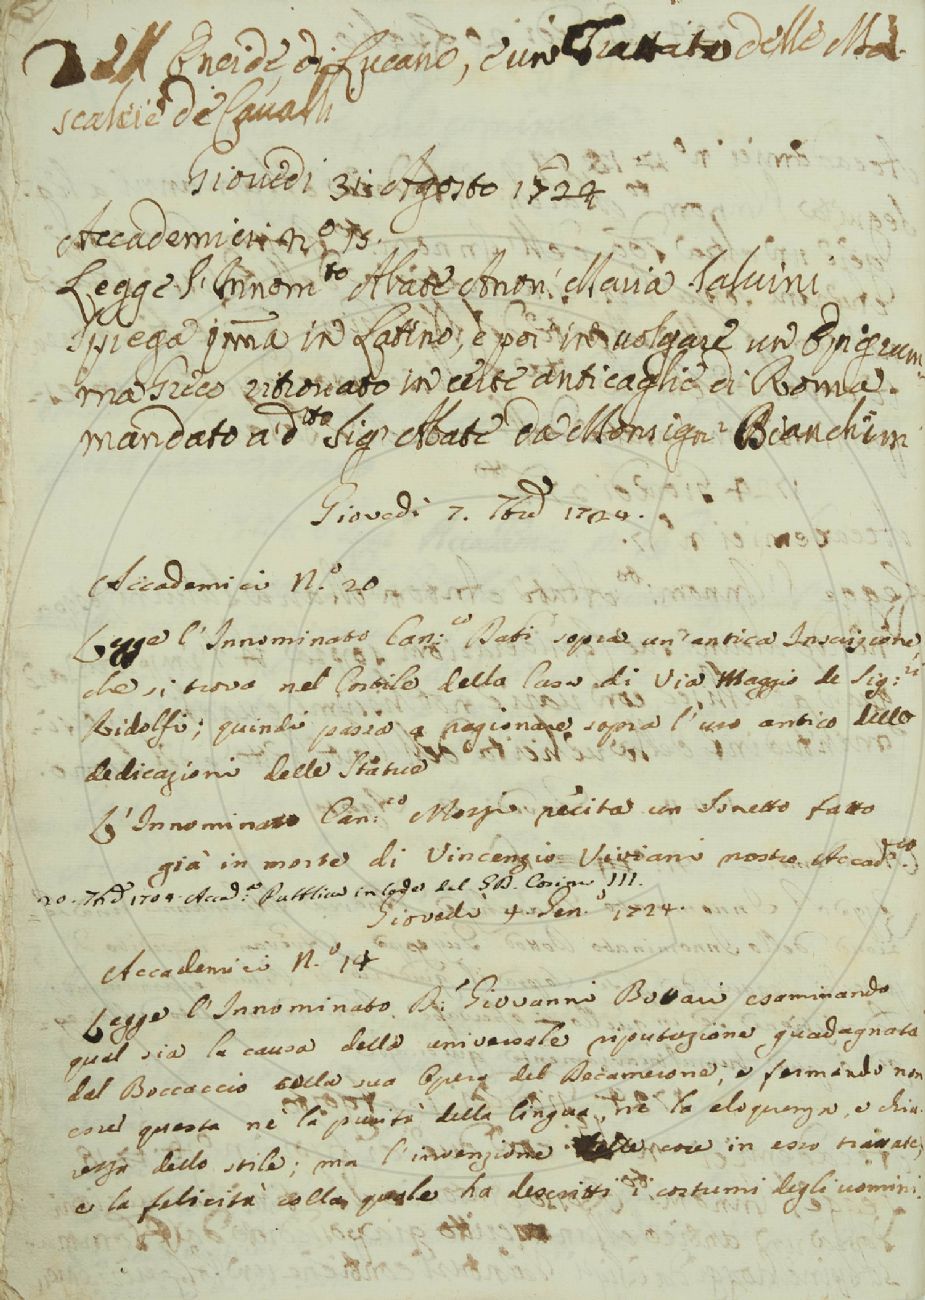 Dell Eneide, di Lucano, e un Trattato delle Ma-
scalcie de Cavalli
Giovedì 31 Agosto 1724
Accademici n.º 15.
Legge l'Innom.to Abate Anton: Maria Salvini
Spiega in Latino, e poi in volgare un Epigram
ma Greco ritrovato in certe anticaglie di Roma
mandato a d.to Sig.r Abate da Monsign.r Bianchini
Giovedì 7. 7bre 1724.
Accademici N.º 20
Legge l'Innominato Can.co sopra un'antica Inscrizione,
che si trova nel Cortile della Casa di Via Maggio de Sig.ri
Ridolfi; quindi passa a ragionare sopra l'uso antico delle
dedicazioni delle Statue
L'Innominato Can.co recita un Sonetto fatto
già in morte di Vincenzio Viviani nostro Accad.co
20. 7bre Accad.a Pubblica in lode del G.D. Cosimo III.
Giovedì 4 Gen.o 1724.
Accademici N.º 14
Legge l'Innominato D.r Giovanni Bottari esaminando
qual sia la causa della universale riputazione guadagnata
dal Boccaccio colla sua Opera del Decamerone, e fermando non
esser questa nè la purità della lingua, nè la eloquenza, e chia-
rezza dello stile; ma l'invenzione delle cose in esso trattate,
e la felicità colla quale ha descritti i costumi degli uomini